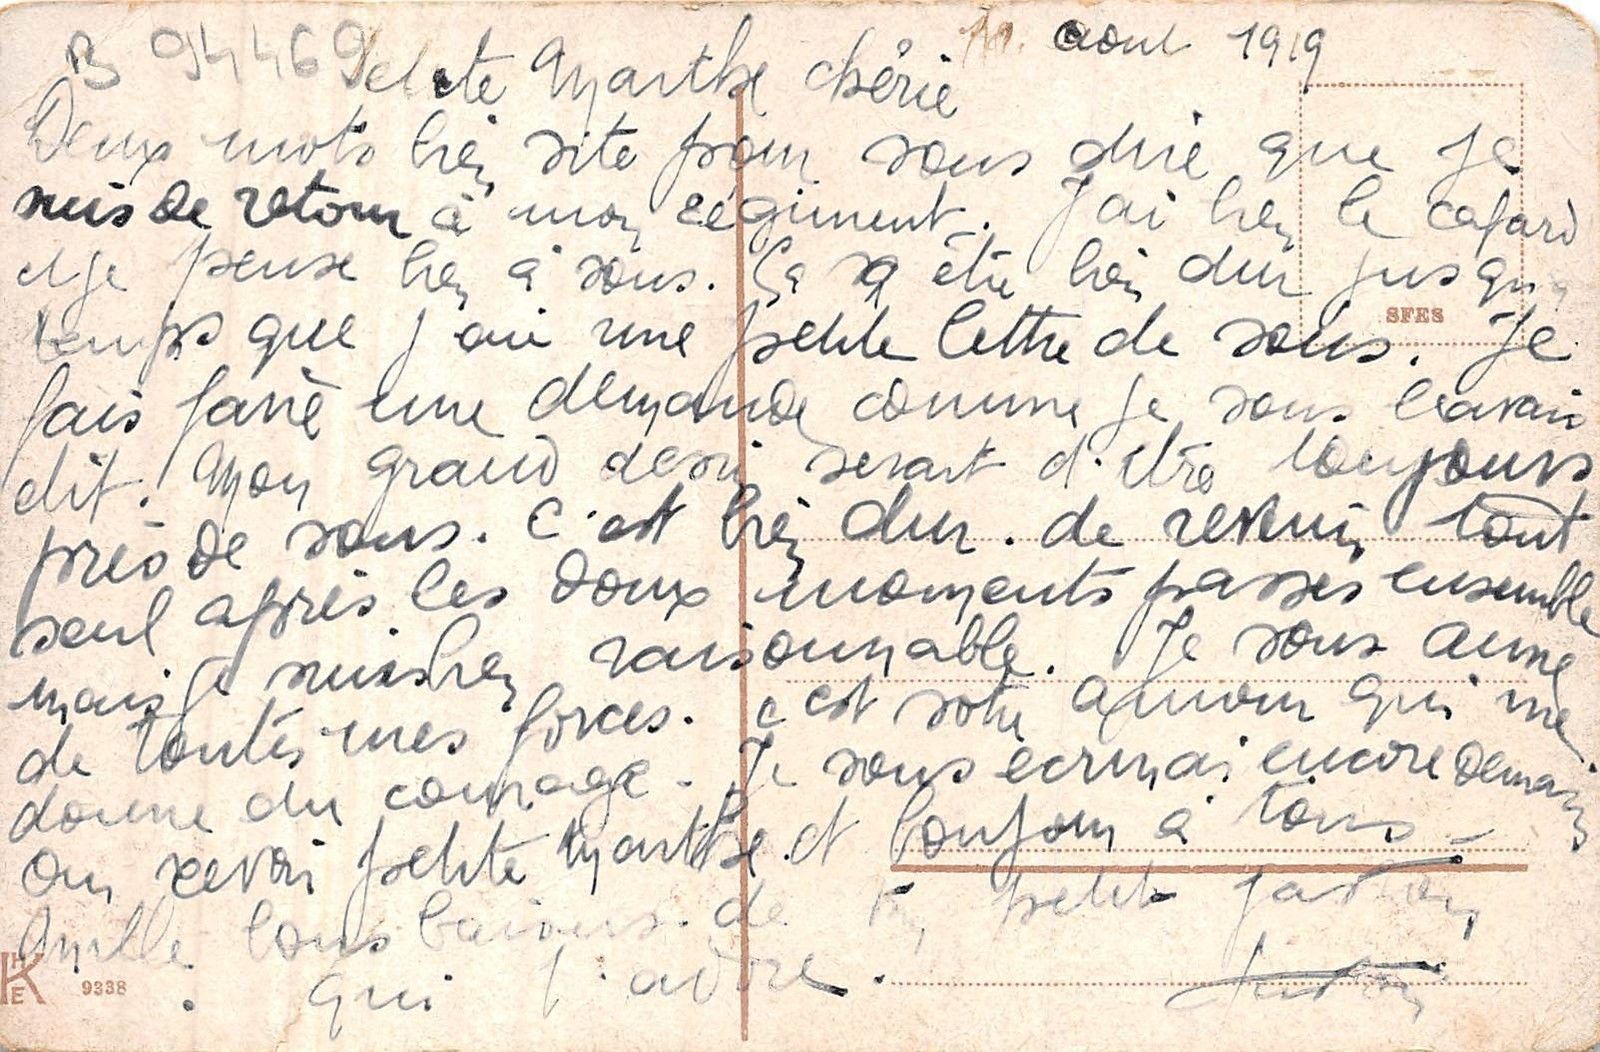 B 94469
aout 1919
Petite Marthe chérie
Deux mots bien vite pour vous dire que je
suis de retour à mon régiment. J'ai bien le cafard
et je pense bien à vous. Ça va être bien dur jusqu'a
temps que j'ai une petite lettre de vous. Je
SFES
fais faire une demande comme je vous l'avais
dit. Mon grand desir serait d'être toujours
près de vous. C'est bien dur de revenir tout
seul après les doux moments passés ensemble
mais je suis bien raisonnable. Je vous aime
de toutes mes forces. C'est votre amour qui me
donne du courage - Je vous ecrirai encore demain
au revoir petite Marthe et bonjour à tous -
Mille bons baisers de ton petit Gaston
qui t'adore.
Gaston
HK
E
9338